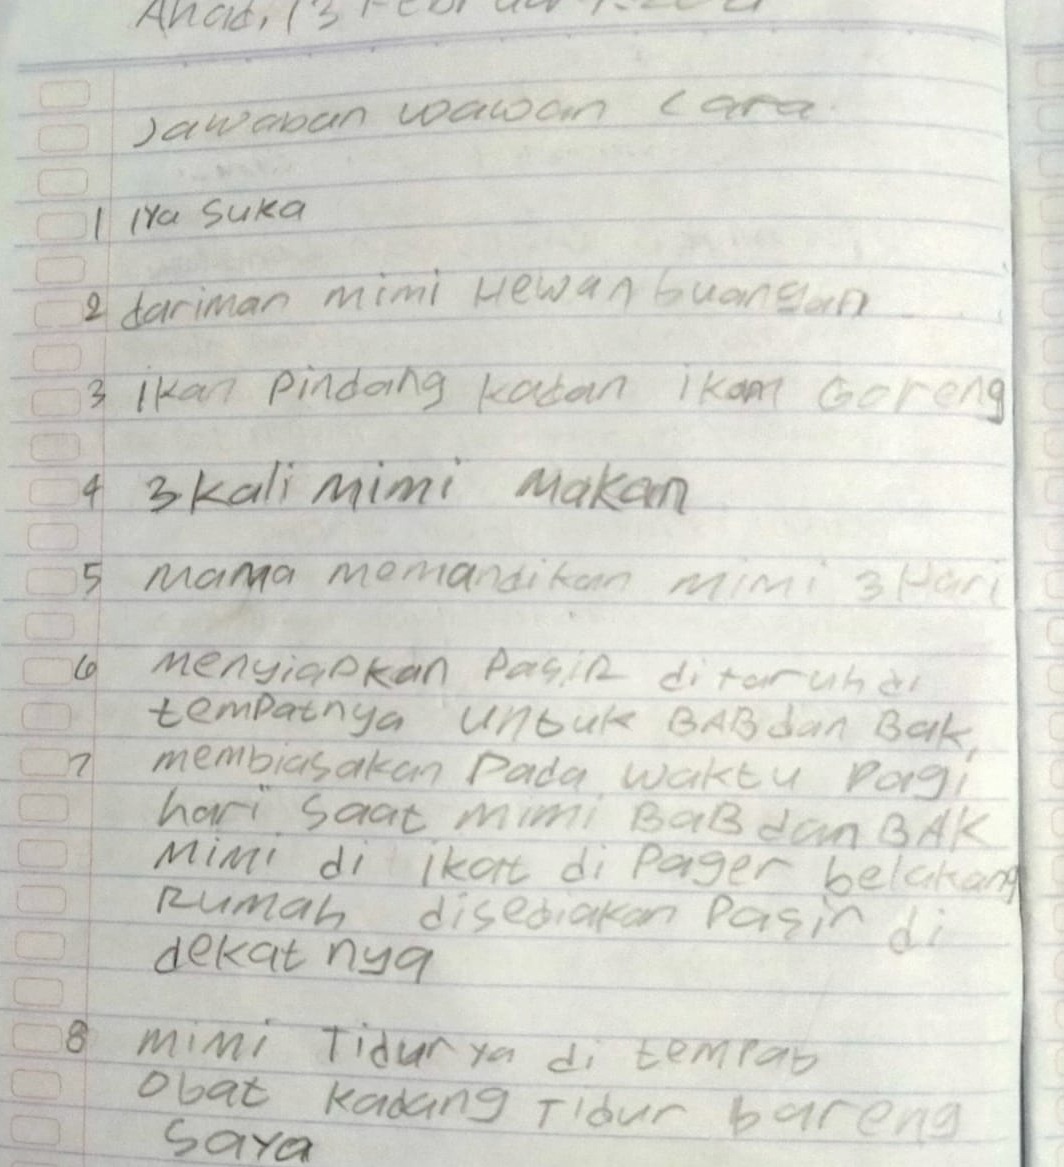 Ahad, 13 Februari
Jawaban wawan cara
1 iya suka
2 tariman mimi Hewan buangan
3 ikan Pindang kadan ikan Goreng
4 3 kali mimi Makan
5 Mama memandikan mimi 3 Hari
6 Menyiapkan PasiR ditaruh di
temPatnya untuk BAB dan Bak,
7 membiasakan Pada waktu Pagi
hari saat mimi BaB dan BAK
Mimi di ikat di Pager belakang
Rumah disediakan Pasir di
dekat nya
8 mimi Tidur ya di tempat
Obat kadang Tidur bareng
saya